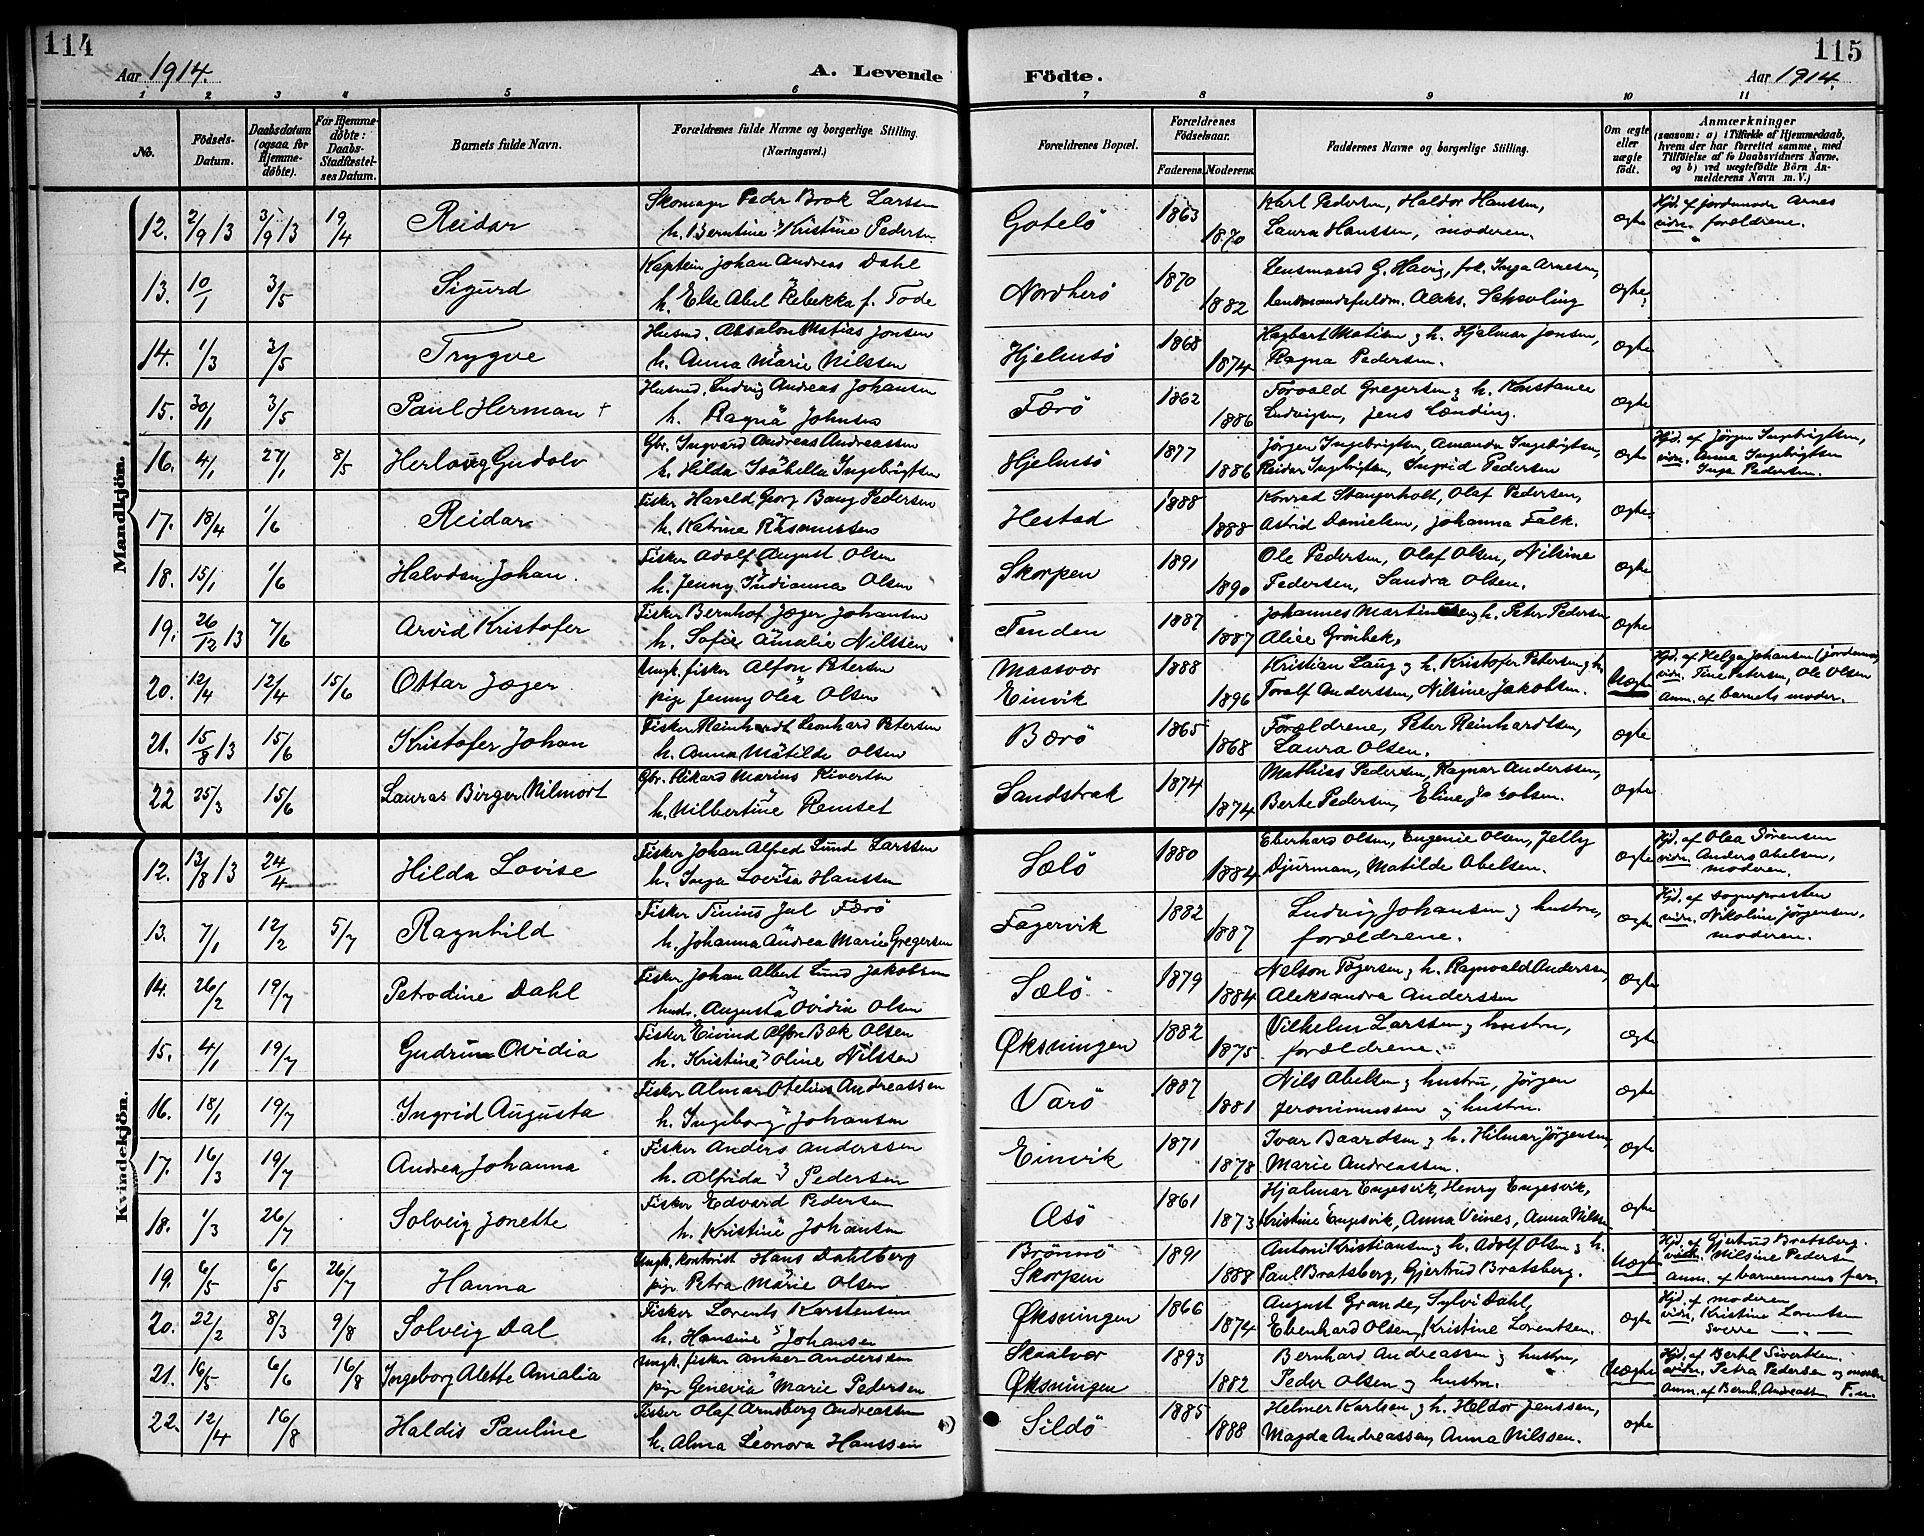 114
115
Aar 1914.
A. Levende
Födte.
Aar 1914.
1 2 3 4 5 6 7 8 9 10 11
No.
Födsels-Datum.
Daabsdatum (ogsaa for Hjemmedöbte).
For Hjemmedöbte: Daabs-Stadfæstelses Datum.
Barnets fulde Navn.
Forældrenes fulde Navne og borgerlige Stilling. (Næringsvei.)
Forældrenes Bopæl.
Forældrenes Födselsaar.
Faderens. Moderens.
Faddernes Navne og borgerlige Stilling.
Om ægte eller uægte födt.
Anmærkninger
(saasom: a) i Tilfælde af Hjemmedaab, hvem der har forrettet samme, med Tilföielse af to Daabsvidners Navne, og b) ved uægtefödte Börn Anmelderens Navn m. V.)
Mandkjön.
12. 2/9 13 3/9 13 19/4 Reidar
Skomager Peder Brok Larssen
h. Berntine Kristine Pedersen
Gotelö 1863 1870
Karl Pedersen, Haldor Hanssen,
Laura Hanssen, moderen.
ægte
Hjd. af jordemoder Arnes
vidn. forældrene.
13. 10/1 3/5 Sigurd
Kaptein Johan Andreas Dahl
h. Else Abel Rebekka f. Tode
Nordherö 1870 1882
Lensmand G. Havig, frk. Inga Arnesen,
lensmandsfuldm. Aleks. Schsöling
ægte
14. 1/3 3/5 Trygve
Husmd. Absalon Matias Jonsen
h. Anna Marie Nilssen
Hjelmsö 1868 1874
Hagbart Matisen og h. Hjalmar Jonsen,
Ragna Pedersen.
ægte
15. 30/1 3/5 Paul Herman +
Husmd. Ludvig Andreas Johansen
h. Ragna Johnsen
Færö 1862 1886
Torvald Gregersen og h. Konstance
Ludvigsen, Jens Lænding.
ægte
16. 4/1 27/1 8/5 Herlaug Gudolv
Gbr. Ingvard Andreas Andreassen
h. Hilda Isabella Ingebrigtsen
Hjelmsö 1877 1886
Jörgen Ingebrigtsen, Amanda Ingebrigtsen,
Reidar Ingebrigtsen, Ingrid Pedersen
ægte
Hjd. af Jörgen Ingebrigtsen,
vidn. Anna Ingebrigtsen
Inga Pedersen.
17. 18/4 1/6 Reidar
Fisker Harald Georg Bang Pedersen
h. Katrine Rasmussen
Hestad 1888 1888
Konrad Stangerholt, Olaf Pedersen,
Astrid Danielsen, Johanna Falk.
ægte
18. 15/1 1/6 Halvdan Johan.
Fisker Adolf August Olsen
h. Jenny Indianna Olsen
Skorpen 1891 1890
Ole Pedersen, Olaf Olsen, Nilsine
Pedersen, Sandra Olsen.
ægte
19. 26/12 13 7/6 Arvid Kristofer
Fisker Bernhof Jæger Johansen
h. Sofie Amalie Nilssen
Tenden 1887 1887
Johannes Martinsen og h. Peter Pedersen
Alice Grönbek,
ægte
20. 12/4 12/4 15/6 Ottar Jæger
Ungk. fisker Alfon Petersen
pige Jenny Olea Olsen
Maasvær
Einvik 1888 1896
Kristian Laug og h. Kristofer Petersen og h.
Toralf Anderssen, Nilsine Jakobsen.
Uægte
Hjd. af Helga Johansen (jordemor)
vidn. Tine Petersen, Ole Olsen
Anm. af barnets moder.
21. 15/8 13 15/6 Kristofer Johan
Fisker Reinhardt Leonhard Petersen
h. Anna Matilde Olsen
Bærö 1865 1868
Forældrene, Peter Reinhardtsen,
Laura Olsen.
ægte
22 25/3 15/6 Lauras Birger Nilmort
Gbr. Rikard Marius Sivertsen
h. Nilbertine Remset
Sandstrak 1874 1874
Mathias Pedersen, Ragnar Anderssen,
Berte Pedersen, Eline Jakobsen.
ægte
Kvindekjön.
12. 13/8 13 24/4 Hilda Lovise
Fisker Johan Alfred Lund Larssen
h. Inga Lovisa Hanssen
Sælö 1880 1884
Eberhard Olsen, Eugenie Olsen, Jelly
Djurman, Matilde Abelsen.
ægte
Hjd. af Olea Sörensen
vidn. Anders Abelsen,
moderen.
13. 7/1 12/2 5/7 Ragnhild
Fisker Tinius Jul Færö
h. Johanna Andrea Marie Gregersen
Fagervik 1882 1887
Ludvig Johansen og hustru,
forældrene.
ægte
Hjd. af sognepresten
vidn. Nikoline Jörgensen,
moderen.
14. 26/2 19/7 Petrodine Dahl
Fisker Johan Albert Lund Jakobsen
hust. Augusta Ovidia Olsen
Sælö 1879 1884
Nelson Tögersen og h. Ragnvald Anderssen,
Aleksandra Anderssen
ægte
15. 4/1 19/7 Gudrun Ovidia
Fisker Eivind Alfon Bæk Olsen
h. Kristine Oline Nilssen
Øksningen 1882 1875
Vilhelm Larssen og hustru,
forældrene.
ægte
16. 18/1 19/7 Ingrid Augusta
Fisker Almar Otelius Andreassen
h. Ingeborg Johansen
Varö 1887 1881
Nils Abelsen og hustru, Jörgen
Jeronimussen og hustru.
ægte
17. 16/3 19/7 Andrea Johanna
Fisker Anders Anderssen
h. Alfrida Pedersen
Einvik 1871 1878
Ivar Baardsen og h. Hilmar Jörgensen,
Marie Andreassen.
ægte
18. 1/3 26/7 Solveig Jonette
Fisker Edvard Pedersen
h. Kristine Johansen
Åsö 1861 1873
Hjalmar Engesvik, Henry Engesvik,
Kristine Engesvik, Anna Veines, Anna Nilsen
ægte
19. 6/5 6/5 26/7 Hanna
Ungk. kontorist Hans Dahlberg
pige Petra Marie Olsen
Brönnö
Skorpen 1891 1888
Anton Kristiansen og h. Adolf Olsen og h.
Paul Bratsberg, Gjertrud Bratsberg.
Uægte
Hjd. af Gjertrud Bratsberg.
vidn. Nilsine Pedersen
Anm. af barnemorens far
20. 22/2 8/3 9/8 Solveig Dal
Fisker Lorents Karstensen
h. Hansine Johansen
Øksningen 1866 1874
August Grande, Sylvi Dahl,
Ebenhard Olsen, Kristine Lorentsen.
ægte
Hjd. af moderen
vidn. Kristine Lorentsen
Sverre — " —
21. 16/5 6/6 16/8 Ingeborg Alette Amalia
Ungk. fisker Anker Anderssen
pige Genevia Marie Pedersen
Skaalvær
Øksningen 1893 1882
Bernhard Andreassen og hustru,
Peder Olsen og hustru.
Uægte
Hjd. af Bertel Sivertsen.
vidn. Petra Pedersen og moderen
Anm. af Bernh. Andreassen
22. 12/4 16/8 Haldis Pauline
Fisker Olaf Arnsberg Andreassen
h. Alma Leonora Hanssen
Sildö 1885 1888
Helmer Karlsen og h. Heldor Jenssen,
Magda Andreassen, Anna Nilssen.
ægte